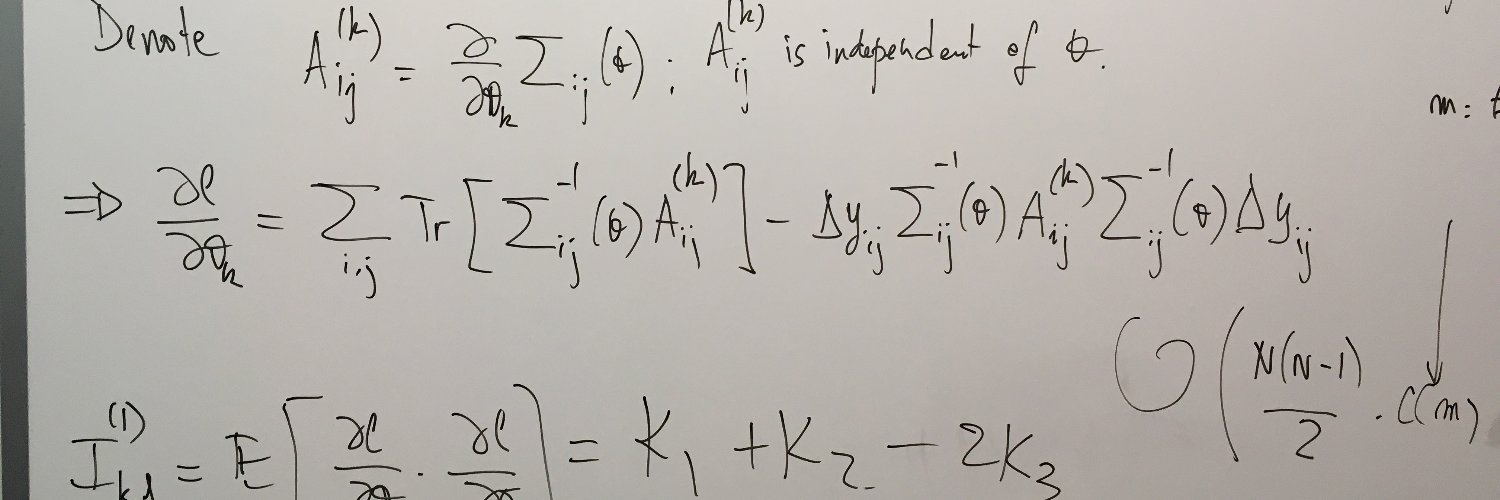 Denote A_{ij}^{(k)} = ∂/∂θ_k Σ_{ij}(θ) ; A_{ij}^{(k)} is independent of θ.
m:
⇒ ∂ℓ/∂θ_k = Σ_{i,j} Tr[Σ_{ij}^{-1}(θ) A_{ij}^{(k)}] - Δy_{ij} Σ_{ij}^{-1}(θ) A_{ij}^{(k)} Σ_{ij}^{-1}(θ) Δy_{ij}
O(N(N-1)/2 · C(m)
I_{kl}^{(1)} = E[∂ℓ/∂θ · ∂ℓ/∂] = K_1 + K_2 - 2K_3